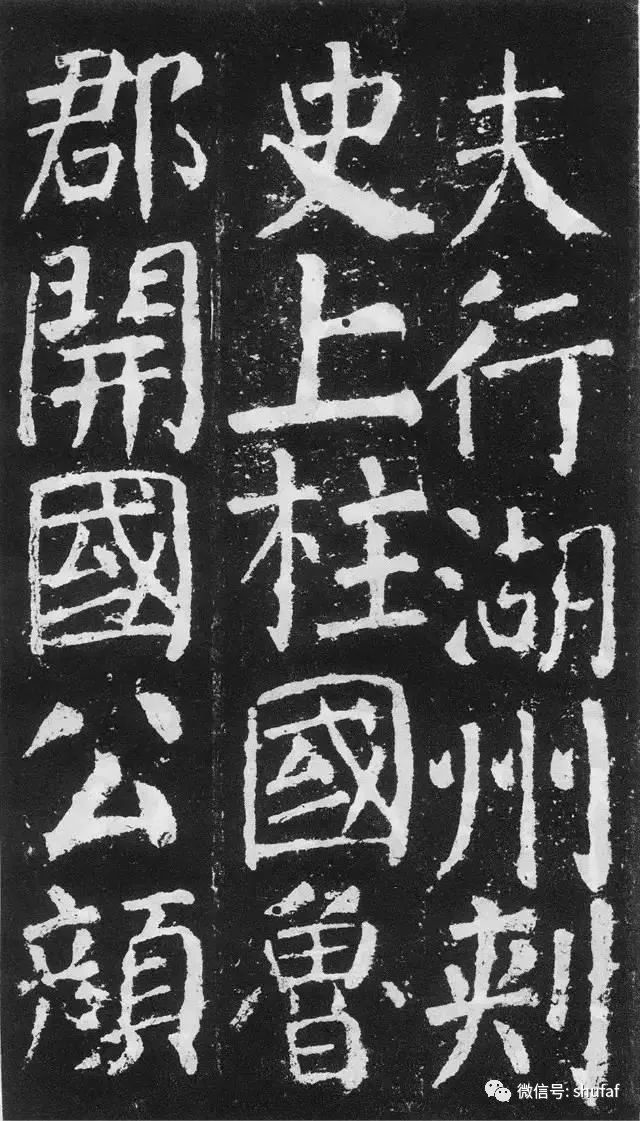 夫行湖州刺
史上柱國魯
郡開國公顏
微信号: shufaf